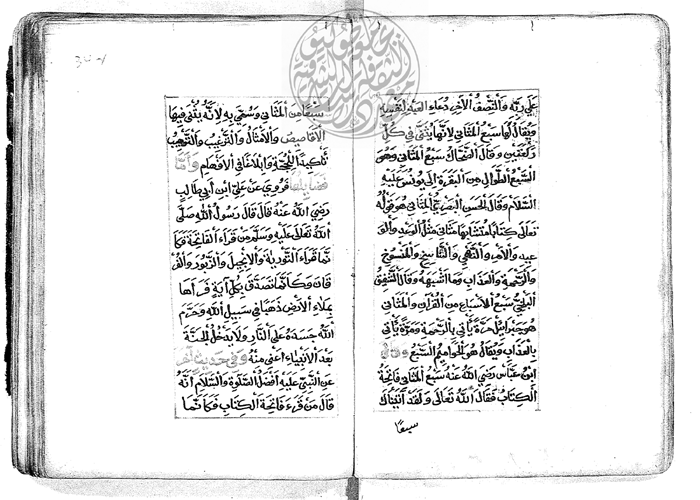 عَلَى رَبِّهِ وَالنِّصْفُ الْآخِرِ دُعَاءِ الْعَبْدِ لِنَفْسِهِ
وَيُقَالُ لَهَا سَبْعُ الْمَثَانِي لِأَنَّهَا يُثَنَّى فِي كُلِّ
رَكْعَتَيْنِ وَقَالَ الضَّحَّاكُ سَبْعُ الْمَثَانِي وَهِيَ
السَّبْعُ الطِّوَالُ مِنَ الْبَقَرَةِ إِلَى يُونُسَ عَلَيْهِ
السَّلَامُ وَقَالَ الْحَسَنُ الْبَصْرِيُّ الْمَثَانِي هُوَ قَوْلُهُ
تَعَالَى كِتَابًا مُتَشَابِهًا مَثَانِيَ مِثْلُ الْوَعْدِ وَالْوَ
عِيدِ وَالْأَمْرِ وَالنَّهْيِ وَالنَّاسِخِ وَالْمَنْسُوخِ
وَالرَّحْمَةِ وَالْعَذَابِ وَمَا أَشْبَهَهُ وَقَالَ
الْبَلْخِيُّ سَبْعُ الْأَسْبَاعِ مِنَ الْقُرْآنِ وَالْمَثَانِي
هُوَ جَبْرَائِيلُ مَرَّةً يَأْتِي بِالرَّحْمَةِ وَمَرَّةً يَأْتِي
بِالْعَذَابِ وَيُقَالُ هُوَ الْحَوَامِيمُ السَّبْعُ وَقَالَ
ابْنُ عَبَّاسٍ رَضِيَ اللهُ عَنْهُ سَبْعُ الْمَثَانِي فَاتِحَةُ
الْكِتَابِ فَقَالَ اللهُ تَعَالَى وَلَقَدْ آتَيْنَاكَ
سبعًا
سَبْعًا مِنَ الْمَثَانِي وَسُمِّيَ بِهِ لِأَنَّهُ يُثَنَّى فِيهَا
الْأَقَاصِيصُ وَالْأَمْثَالُ وَالتَّرْغِيبُ وَالتَّرْهِيبُ
تَأْكِيدًا لِلْحُجَّةِ وَإِبْلَاغًا فِي الْأَفْهَامِ وَأَمَّا
فَضَايِلُهَا فَرُوِيَ عَنْ عَلِيِّ ابْنِ أَبِي طَالِبٍ
رَضِيَ اللهُ عَنْهُ قَالَ قَالَ رَسُولُ اللهِ صَلَّى
اللهُ تَعَالَى عَلَيْهِ وَسَلَّمَ مَنْ قَرَاءَ الْفَاتِحَةَ فَكَأَ
نَّمَا قَرَاءَ التَّوْرِيةَ وَالْإِنْجِيلَ وَالزَّبُورَ وَالْفُرْ
قَانَ وَكَأَنَّمَا تَصَدَّقَ بِكُلِّ آيَةٍ قَرَأَهَا
بِمِلَاءِ الْأَرْضِ ذَهَبًا فِي سَبِيلِ اللهِ وَحَرَّمَ
اللهُ جَسَدَهُ عَلَى النَّارِ وَلَا يَدْخُلُ الْجَنَّةَ
بَعْدَ الْأَنْبِيَاءِ أَغْنَى مِنْهُ وَفِي حَدِيثٍ آخَرَ
عَنِ النَّبِيِّ عَلَيْهِ أَفْضَلُ الصَّلَوةِ وَالسَّلَامِ أَنَّهُ
قَالَ مَنْ قَرَءَ فَاتِحَةَ الْكِتَابِ فَكَأَنَّمَا